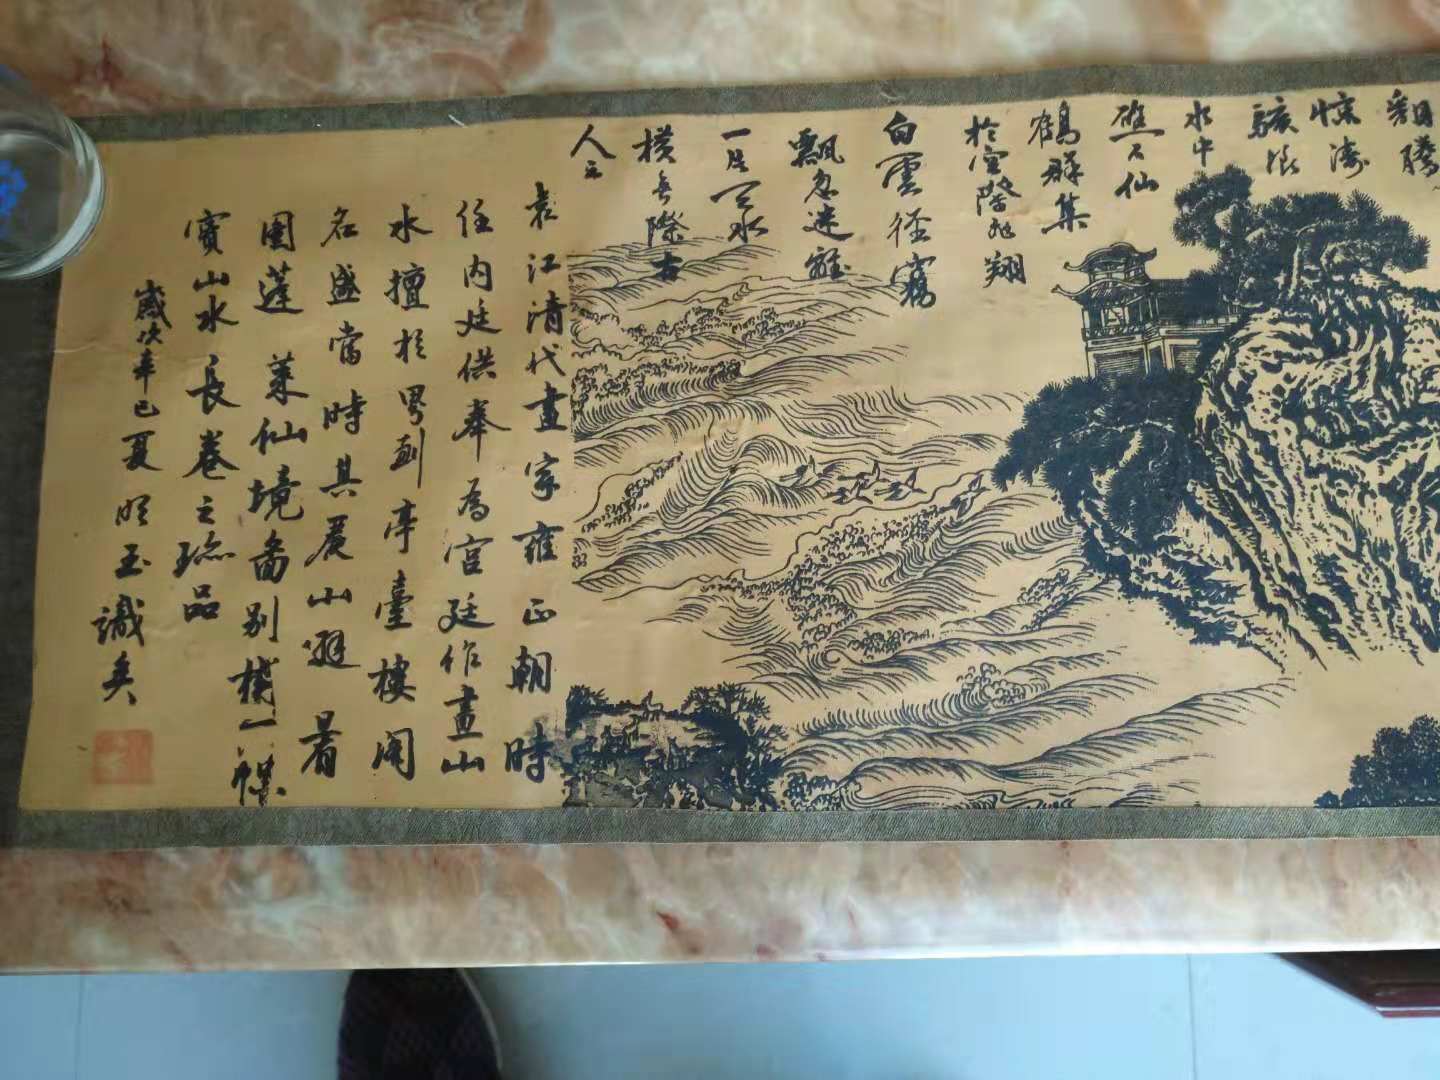 翻騰
惊涛
駭浪
水中
礁石仙
鶴群集
於空階起翔
白雲径窩
飄忽迷離
一片天水
横無際古
人云
袁江清代畫家雍正朝時
任内廷供奉為宫廷作畫山
水擅於界画亭臺樓阁
名盛當時其晨山避暑
圖蓬莱仙境啚别樣一幀
實山水長卷之珎品
歲次辛巳夏
玉識矣